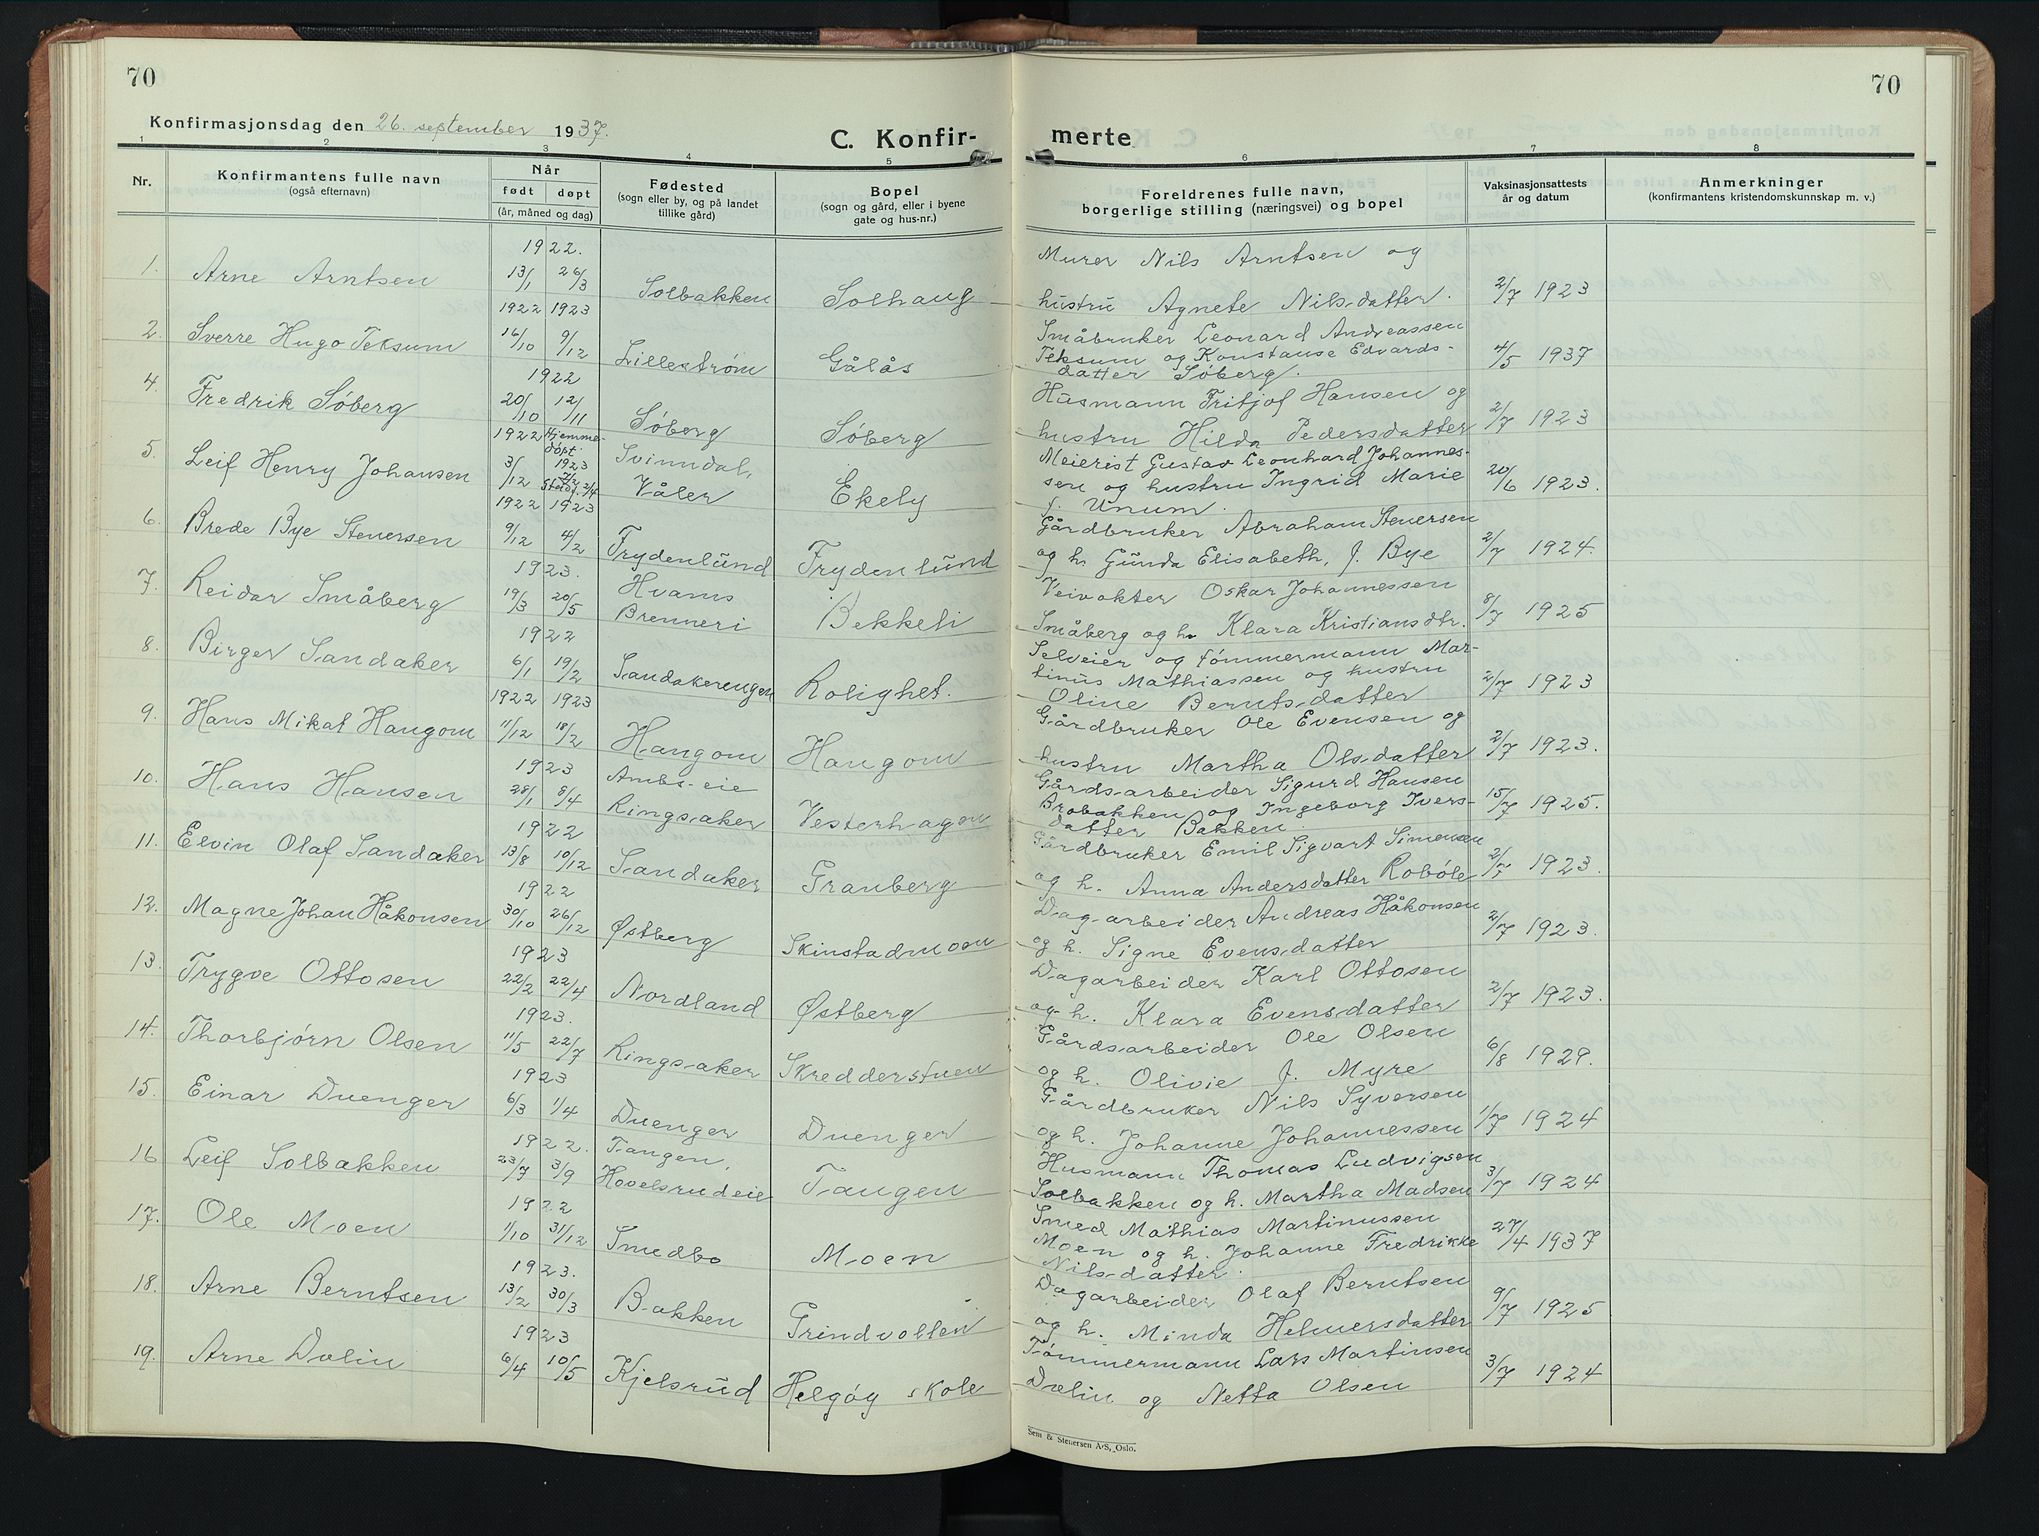 70
70
Konfirmasjonsdag den 26. september 1937.
C. Konfir-
merte
1 2 3 4 5 6 7 8
Nr.
Konfirmantens fulle navn
(også efternavn)
Når
født døpt
(år, måned og dag)
Fødested
(sogn eller by, og på landet
tillike gård)
Bopel
(sogn og gård, eller i byene
gate og hus-nr.)
Foreldrenes fulle navn,
borgerlige stilling (næringsvei) og bopel
Vaksinasjonsattests
år og datum
Anmerkninger
(konfirmantens kristendomskunnskap m. v.)
1922.
1. Arne Arntsen 13/1 26/3 Solbakken Solhaug Murer Nils Arntsen og
hustru Agnete Nilsdatter. 2/7 1923
1922 1923
2. Sverre Hugo Teksum 16/10 9/12 Lillestrøm Gålås Småbruker Leonard Andreassen
Teksum og Konstanse Edvards- 4/5 1937
datter Søberg.
1922
4. Fredrik Søberg 20/10 12/11 Søberg Søberg Husmann Fritjof Hansen og
hustru Hilda Pedersdatter 2/7 1923
1922 Hjemme-
døpt.
1923
5. Leif Henry Johansen 3/12 2/4 Svinndal, Våler Ekely Meierist Gustav Leonhard Johannes-
sen og hustru Ingrid Marie 20/6 1923.
f. Unum.
1922 1923
6. Brede Bye Stenersen 9/12 4/2 Frydenlund Frydenlund Gårdbruker Abraham Stenersen
og h. Gunda Elisabeth, f. Bye 2/7 1924.
1923.
7. Reidar Småberg 19/3 20/5 Hvams Brenneri Bekkeli Veivokter Oskar Johannessen
Småberg og h. Klara Kristiansdtr. 8/7 1925
1922
8. Birger Sandaker 6/1 19/2 Sandakerengen Rolighet. Selveier og tømmermann Mar-
tinus Mathiassen og hustru 2/7 1923
Oline Berntsdatter
1922 1923
9. Hans Mikal Haugom 11/12 18/2 Haugom Haugom Gårdbruker Ole Evensen og
hustru Martha Olsdatter 2/7 1923.
1923
10. Hans Hansen 28/1 8/4 Ambs-eie Ringsaker Vesterhagen Gårdsarbeider Sigurd Hansen
Brobakken og Ingeborg Ivers- 15/7 1925.
datter Bakken
1922
11. Elvin Olaf Sandaker 13/8 10/12 Sandaker Granberg Gårdbruker Emil Sigvart Simensen
og h. Anna Andersdatter Robøle 2/7 1923.
1922
12. Magne Johan Håkonsen 30/10 26/12 Østberg Skinstadmoen Dagarbeider Andreas Håkonsen
og h. Signe Evensdatter 2/7 1923.
1923
13. Trygve Ottosen 22/2 22/4 Nordland Østberg Dagarbeider Karl Ottosen
og h. Klara Evensdatter 2/7 1923.
1923.
14. Thorbjørn Olsen 11/5 22/7 Ringsaker Skredderstuen Gårdsarbeider Ole Olsen
og h. Olivie f. Myre 6/8 1929.
1923
15. Einar Duenger 6/3 1/4 Duenger Duenger Gårdbruker Nils Syversen
og h. Johanne Johannessen 1/7 1924
1922.
16 Leif Solbakken 23/7 3/9 Tangen, Hovelsrudeie Tangen Husmann Thomas Ludvigsen
Solbakken og h. Martha Madsen 3/7 1924
1922
17. Ole Moen 1/10 31/12 Smedbo Moen Smed Mathias Martinussen
Moen og h. Johanne Fredrikke 27/4 1937
Nilsdatter.
1923.
18. Arne Berntsen 13/2 30/3 Bakken Grindvollen Dagarbeider Olaf Berntsen
og h. Minda Helmersdatter 9/7 1925
1923
19. Arne Dælin 6/4 10/5 Kjelsrud Helgøy skole Tømmermann Lars Martinsen
Dælin og Netta Olsen 3/7 1924
Sem & Stenersen A/S, Oslo.